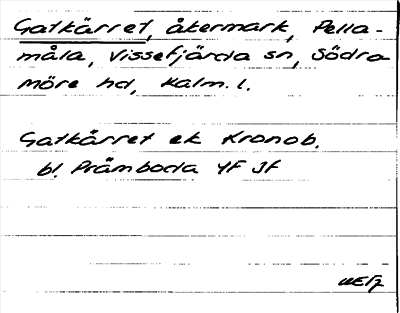 Gatkärret, åkermark, Pella-
måla, Vissefjärda sn, Södra
Möre hd, Kalm. l.
Gatkärret ek Kronob.
bl. Pråmboda YF JF